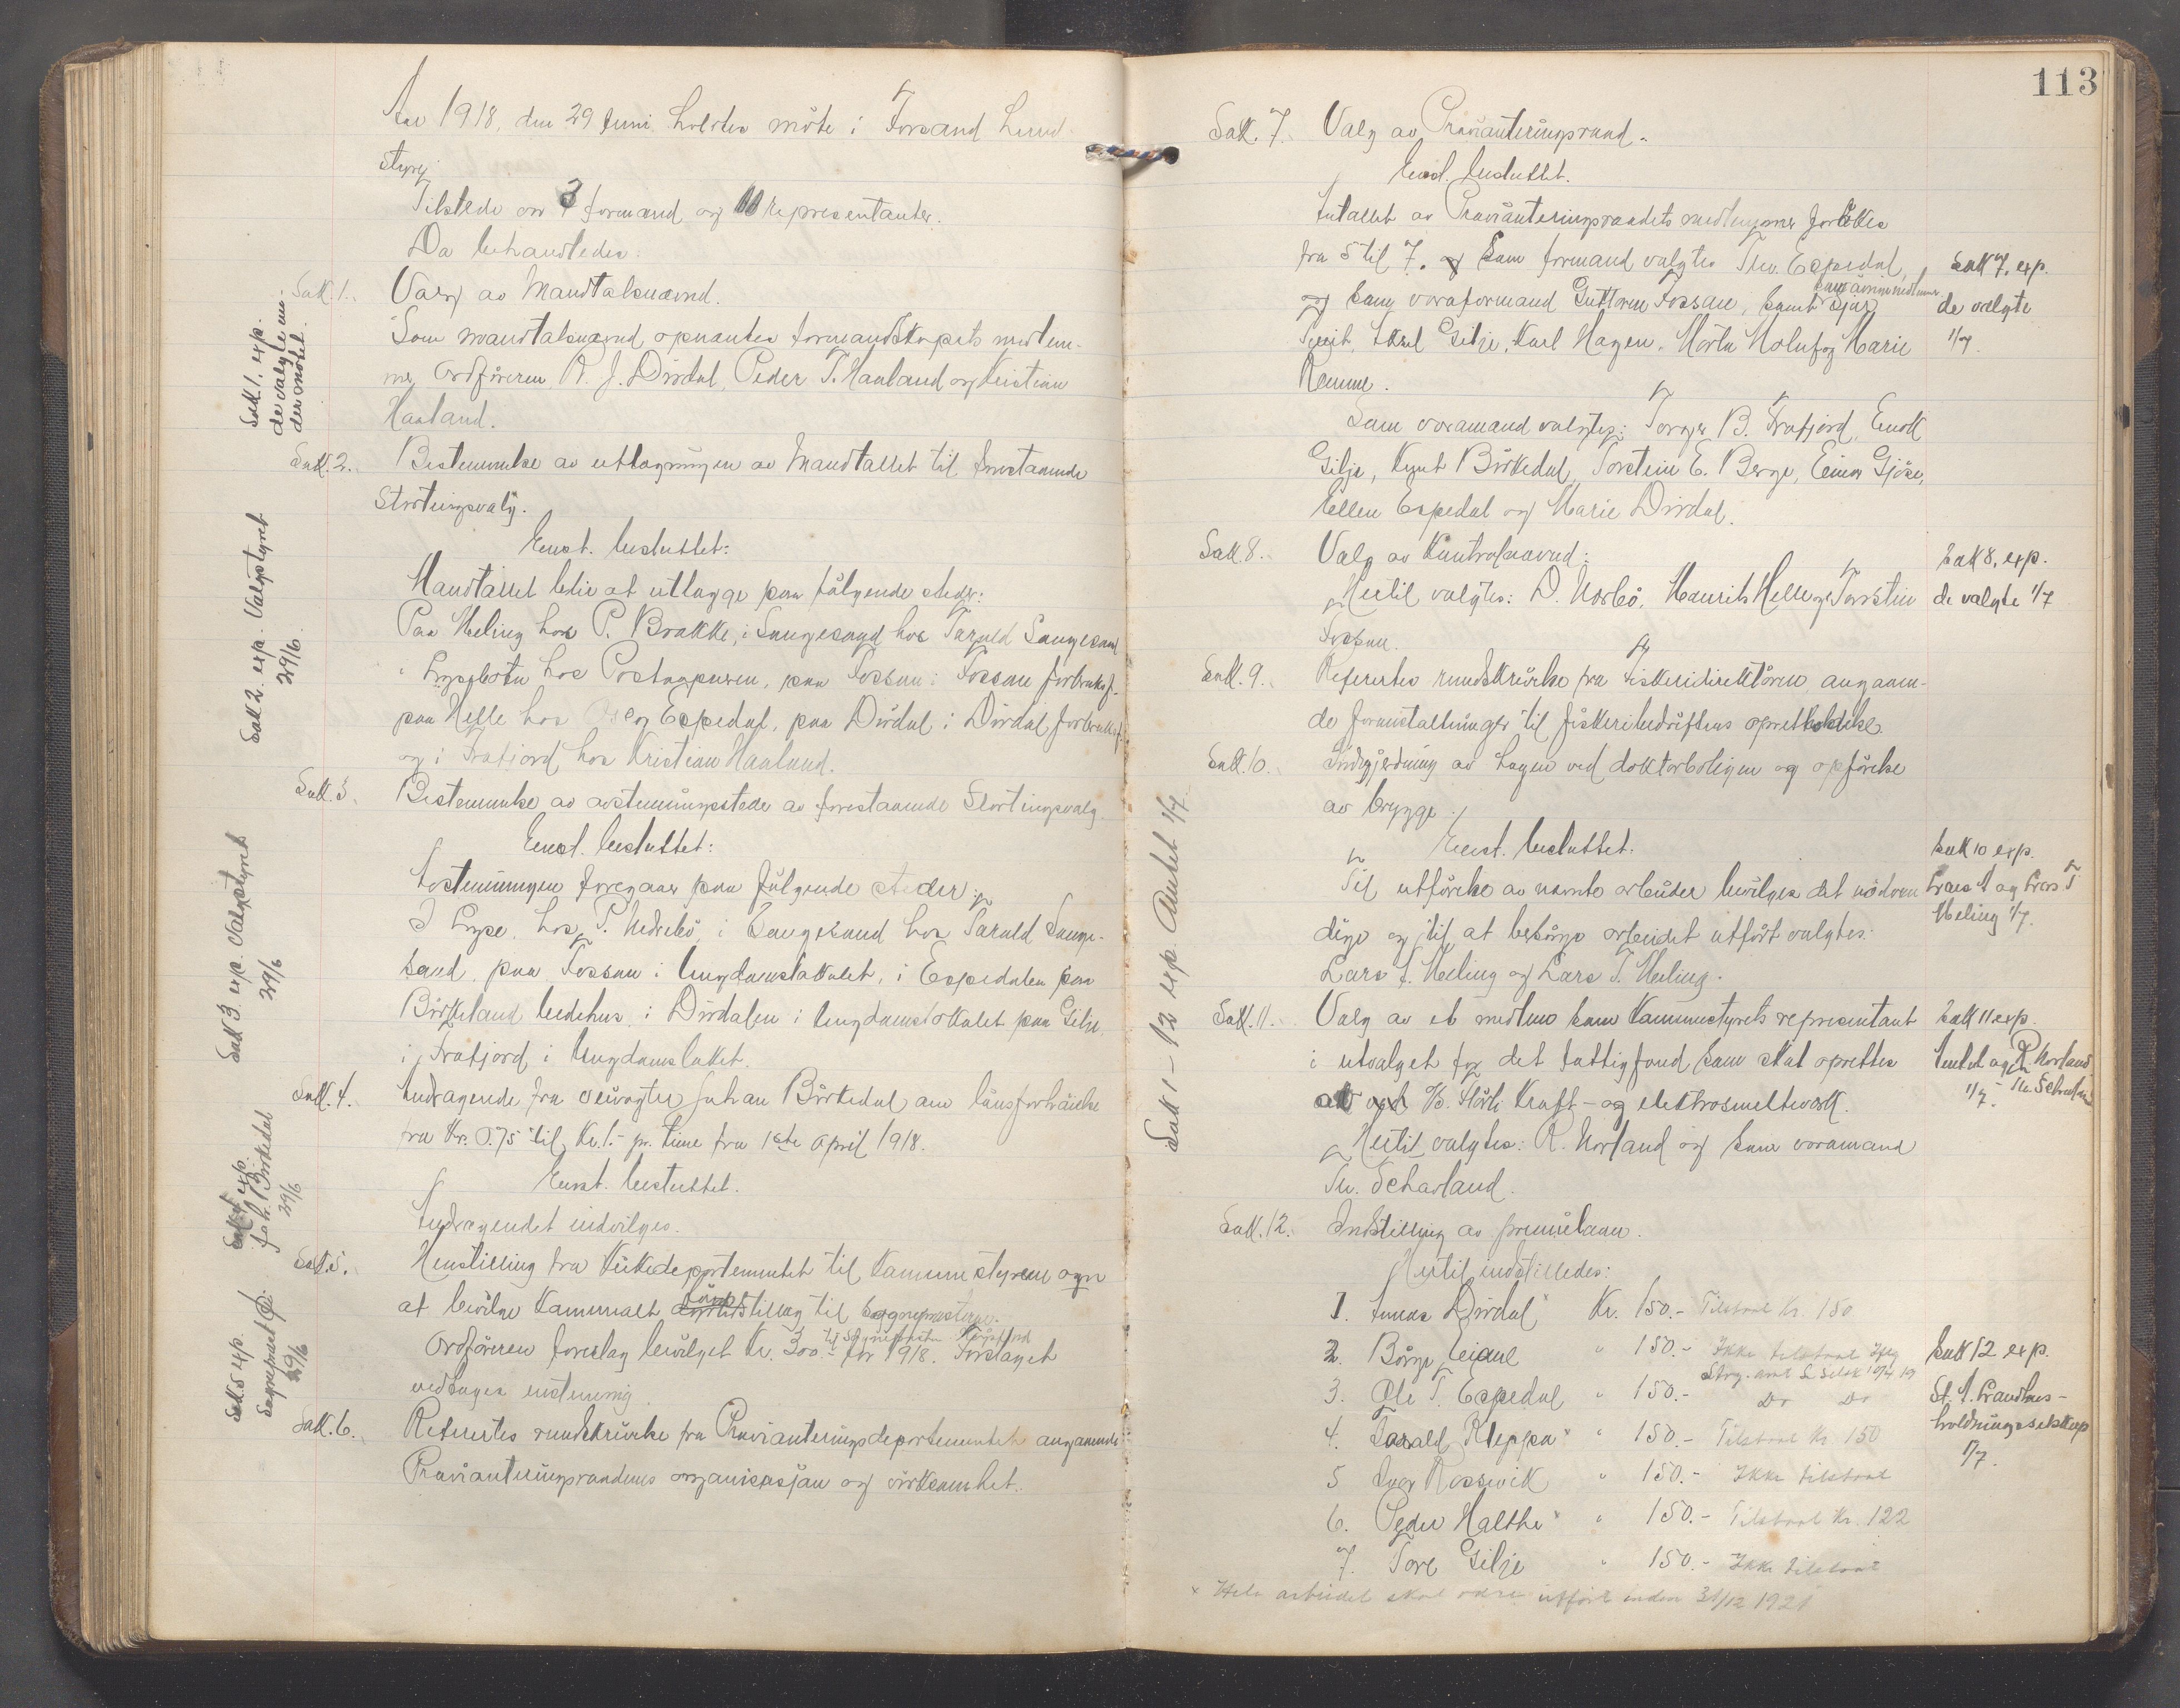 Aar 1918, den 29 Juni holdtes møte i Forsand herred-
styre.
Tilstede var 3 formænd og 10 representanter.
Da behandledes:
Sak. 1. Valg av Mandtalsnævnd.
Som mandtalsnævnd opnævntes formandskapets medlem-
mer Ordføreren R. J. Dirdal, Peder T. Haaland og Kristian
Haaland.
Sak 1. exp.
de valgte un-
der møtet.
Sak. 2. Bestemmelse av utlægningen av Mandtallet til forestaaende
Stortingsvalg.
Enst. besluttet:
Mandtallet blir at utlægge paa følgende steder:
Paa Meling hos P. Brakke, i Songesand hos Tarald Songesand
i Lysebotn hos Postaapneren, paa Fossan i Fossan forbruksf.
paa Helle hos Espedal, paa Dirdal i Dirdal forbruksf.
og i Frafjord hos Kristian Haaland.
Sak 2. exp. Valgstyret
29/6.
Sak. 3. Bestemmelse av avstemningssteder av forestaaende Stortingsvalg.
Enst. besluttet:
Avstemningen foregaar paa følgende steder:
I Lyse hos T. Nedrebø, i Songesand hos Tarald Songe-
sand, paa Fossan i Ungdomslokalet, i Espedalen paa
Birkeland bedehus, i Dirdalen i Ungdomslokalet paa Gilje,
i Frafjord i Ungdomslokalet.
Sak 3. exp. Valgstyret
29/6
Sak. 4. Andragende fra veivogter Johan Birkedal om lønsforhøielse
fra Kr. 0.75 til Kr. 1.- pr. time fra 1ste April 1918.
Enst. besluttet.
Andragendet indvilges.
Sak 4 exp.
Joh. Birkedal
29/6
Sak. 5. Henstilling fra Kirkedepartementet til Kommunestyrene om
at bevilge kommunalt lønstillæg til Sogneprestene.
Ordføreren foreslog bevilget Kr. 300.- til Sogneprest Høgsfjord for 1918. Forslaget
vedtages enstemmig.
Sak 5 exp.
Sogneprest
29/6
Sak. 6. Refertes rundskrivelse fra Provianteringsdepartementet angaaende
Provianteringsraadenes organisasjon og virksomhet.
113
Sak. 7. Valg av Provianteringsraad.
Enst. besluttet.
Antallet av Provianteringsraadets medlemmer forøkes
fra 5 til 7. Som formand valgtes Thv. Espedal,
og som varaformand Guttorm Fossan, samt som øvrige medlemmer
Axel Gilje, Karl Hagen, Marta Molaug Marie
Rømme.
Sak 7. exp.
de valgte
1/7
Som varamænd valgtes: Torger B. Frafjord, Enok
Gilje, Knut Birkedal, Torstein E. Berge, Einar Gjøse,
Ellen Espedal og Marie Dirdal.
Sak 8. Valg av Kontrolnævnd:
Hertil valgtes: D. Norbø, Maurits Helle og Torstein
Fossan.
Sak 8, exp.
de valgte 1/7
Sak. 9. Refertes rundskrivelse fra Fiskeridirektøren angaaen-
de foranstaltninger til fiskeribedriftens opretholdelse.
Sak. 10. Indgjerdning av hagen ved doktorboligen og opførelse
av brygge.
Enst. besluttet.
Til utførelse av nævnte arbeider bevilges det nødven-
dige og til at besørge arbeidet utført valgtes:
Lars A. Meling og Lars T. Meling.
Sak 10 exp.
Lars A og Lars T
Meling 1/7.
Sak. 11. Valg av et medlem som Kommunestyrets representant
i utvalget for det fattigfond som skal oprettes
A/S. Fløirli Kraft- og elektrosmelteverk.
Hertil valgtes: R. Norland og som varamand
Tn. Schavland.
Sak 11 exp.
Amtet og R. Norland
1/7 - Tn. Schavland
Sak. 12. Indstilling av premielaan.
Hertil indstilledes:
1. Jonas Dirdal x Kr. 150.- Tilstaat Kr. 150
2. Børge Eiane " 150.- Ikke tilstaat
3. Ole T. Espedal " 150.- Do Do
4. Tarald Kleppa x " 150.- Tilstaat Kr 150
5 Iver Rossevik " 150.- Ikke tilstaat
6. Peder Malthe x " 150.- Tilstaat Kr. 122
7. Tore Gilje " 150.- Ikke tilstaat
Sak 12 exp.
St. A. Landhus-
holdningsselskap
1/7.
x Hele arbeidet skal være utført inden 31/12 1921
Sak 1 - 12 exp. Amtet 1/7